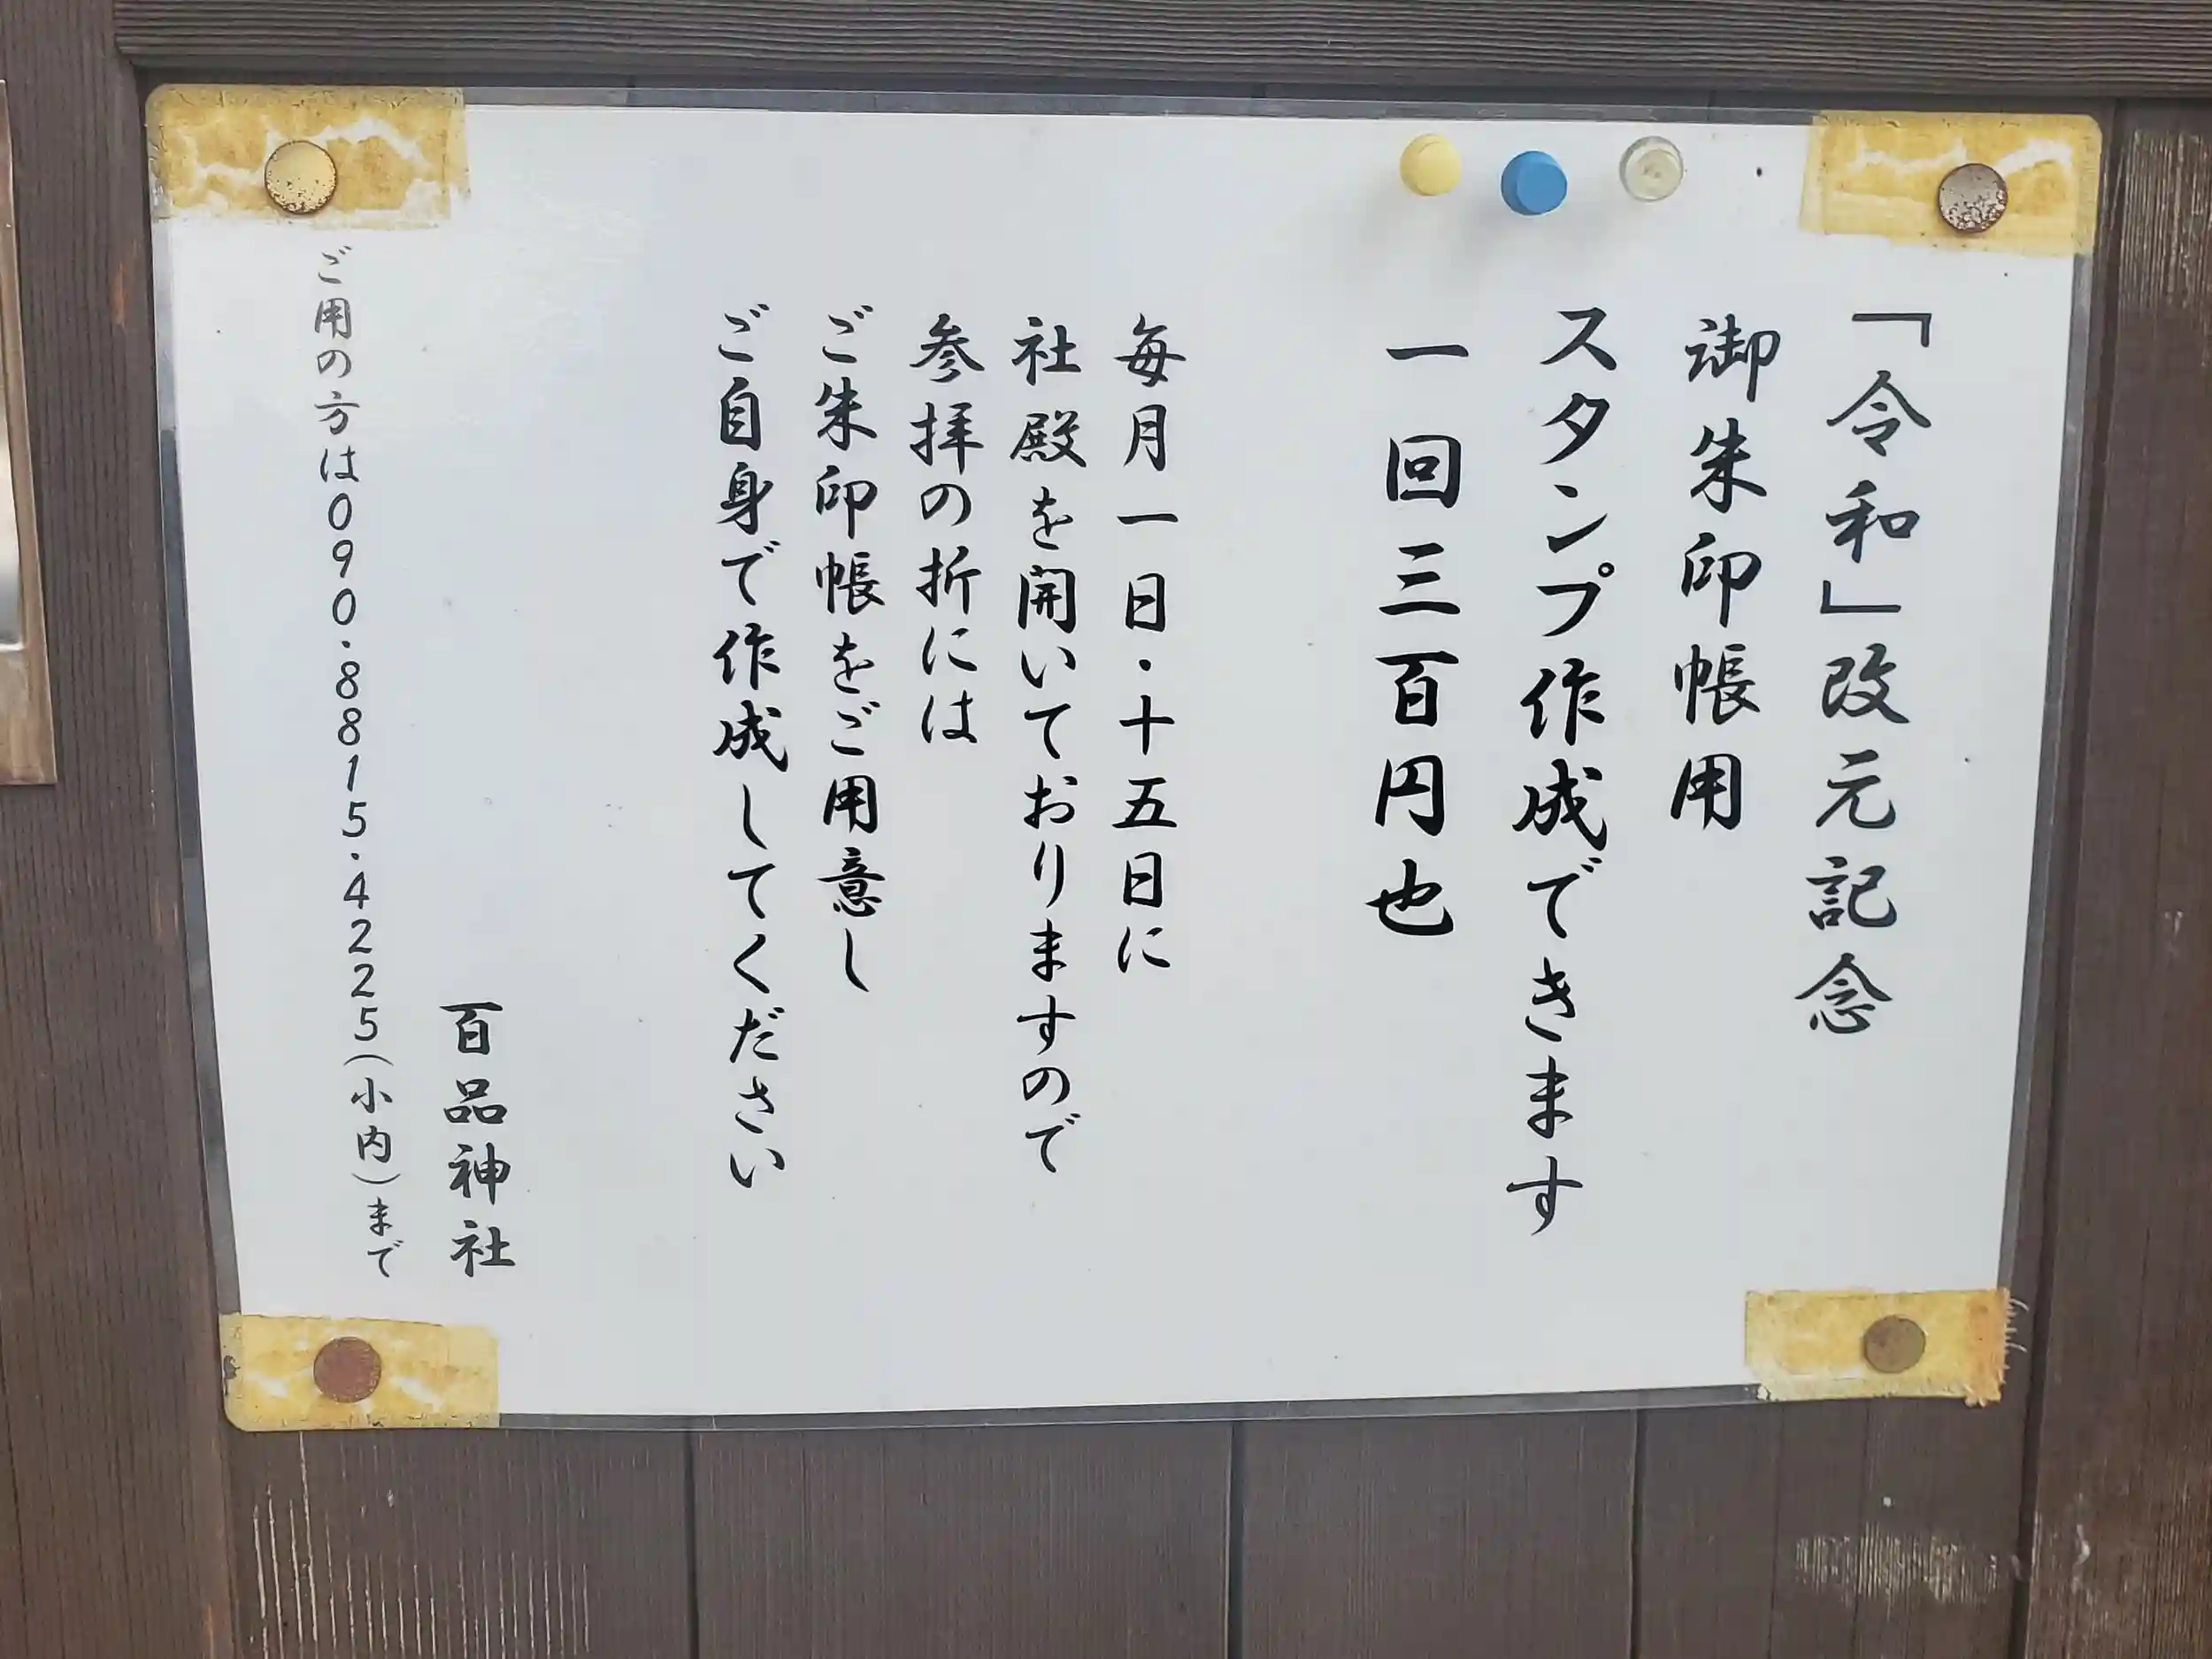 「令和」改元記念
御朱印帳用
スタンプ作成できます
一回三百円也
毎月一日・十五日に
社殿を開いておりますので
参拝の折には
ご朱印帳をご用意し
ご自身で作成してください
百品神社
ご用の方は090・8815・4225(小内)まで